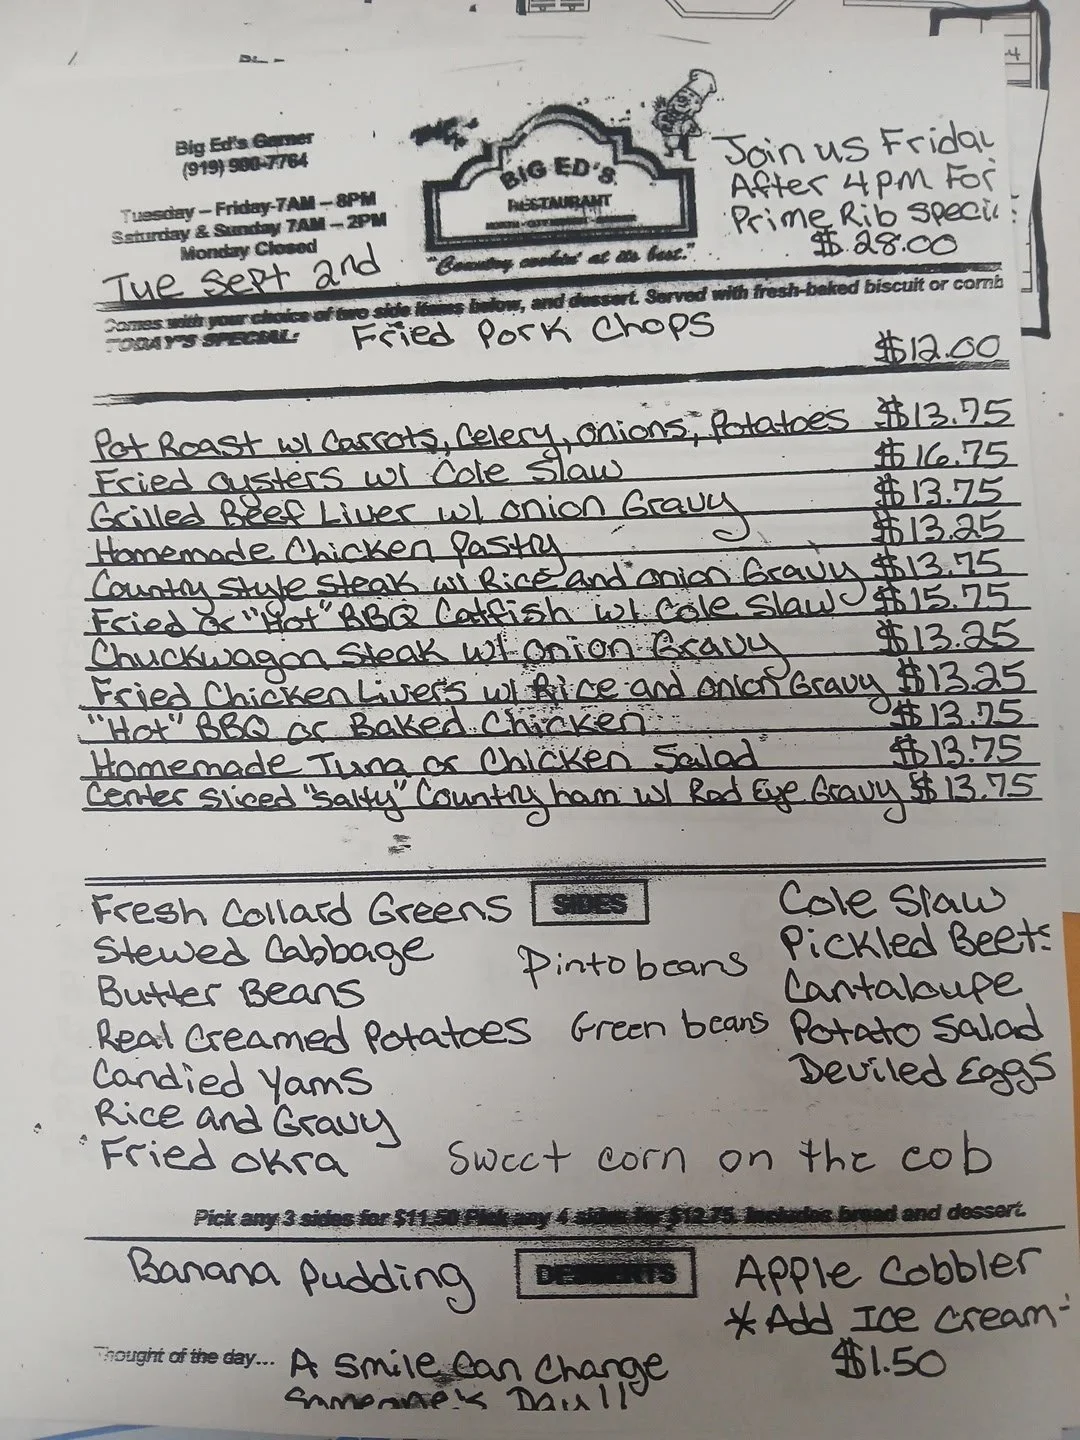 Big Ed's Garner
(919) 900-7764
Tuesday – Friday-7AM – 8PM
Saturday & Sunday 7AM – 2PM
Monday Closed
Tue Sept 2nd
BIG ED'S
RESTAURANT
"Country cookin' at its best."
Join us Friday
After 4pm For
Prime Rib Speci
$28.00
Comes with your choice of two side items below, and dessert. Served with fresh-baked biscuit or cornb
TODAY'S SPECIAL: Fried Pork Chops
$12.00
Pot Roast w/ Carrots, Celery, onions, Potatoes $13.75
Fried oysters w/ Cole Slaw $16.75
Grilled Beef Liver w/ onion Gravy $13.75
Homemade Chicken Pastry $13.25
Country Style Steak w/ Rice and onion Gravy $13.75
Fried or "Hot" BBQ Catfish w/ Cole Slaw $15.75
Chuckwagon Steak w/ onion Gravy $13.25
Fried Chicken Livers w/ Rice and onion Gravy $13.25
"Hot" BBQ or Baked Chicken $13.75
Homemade Tuna or Chicken Salad $13.75
Center Sliced "Salty" Country ham w/ Red Eye Gravy $13.75
SIDES
Fresh Collard Greens
Stewed Cabbage
Butter Beans
Real Creamed Potatoes
Candied Yams
Rice and Gravy
Fried okra
Pinto beans
Green beans
Sweet corn on the cob
Cole Slaw
Pickled Beets
Cantaloupe
Potato Salad
Deviled Eggs
Pick any 3 sides for $11.50 Pick any 4 sides for $12.75. Includes bread and dessert.
DESSERTS
Banana Pudding
Apple Cobbler
*Add Ice Cream-
$1.50
Thought of the day... A Smile Can Change
Someone's Day!!